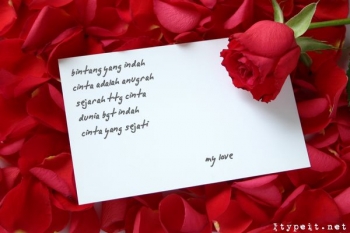 bintang yang indah
cinta adalah anugrah
sejarah ttg cinta
dunia bgt indah
cinta yang sejati
my love
ltypeit.net